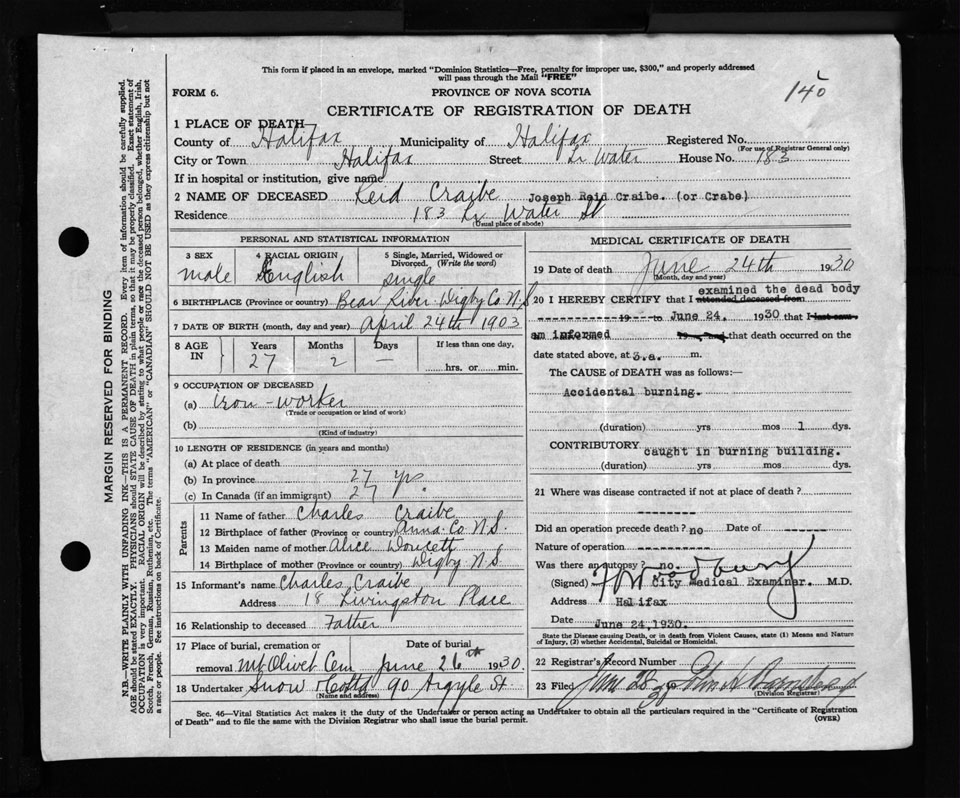 This form if placed in an envelope, marked "Dominion Statistics—Free, penalty for improper use, $300," and properly addressed
will pass through the Mail "FREE"
140
FORM 6. PROVINCE OF NOVA SCOTIA
CERTIFICATE OF REGISTRATION OF DEATH
1 PLACE OF DEATH
County of Halifax Municipality of Halifax Registered No.
(For use of Registrar General only)
City or Town Halifax Street Lr Water House No. 183
If in hospital or institution, give name
2 NAME OF DECEASED Reid Craibe Joseph Reid Craibe. (or Crabe)
Residence 183 Lr Water St
(Usual place of abode)
PERSONAL AND STATISTICAL INFORMATION
3 SEX 4 RACIAL ORIGIN 5 Single, Married, Widowed or Divorced. (Write the word)
male English single
6 BIRTHPLACE (Province or country) Bear River Digby Co. N.S
7 DATE OF BIRTH (month, day and year) April 24th 1903
8 AGE IN Years Months Days If less than one day,
27 2 — hrs. or min.
9 OCCUPATION OF DECEASED
(a) Iron-worker
(Trade or occupation or kind of work)
(b)
(Kind of industry)
10 LENGTH OF RESIDENCE (in years and months)
(a) At place of death
(b) In province 27 yrs.
(c) In Canada (if an immigrant) 27
Parents
11 Name of father Charles Craibe
12 Birthplace of father (Province or country) Anna. Co N.S.
13 Maiden name of mother Alice Doucett
14 Birthplace of mother (Province or country) Digby N.S
15 Informant's name Charles Craibe
Address 18 Livingston Place
16 Relationship to deceased Father
17 Place of burial, cremation or Date of burial
removal Mt Olivet Cem June 26th 1930.
18 Undertaker Snow & Co Ltd 90 Argyle St
(Name and address)
MEDICAL CERTIFICATE OF DEATH
19 Date of death June 24th 1930
(Month, day and year)
examined the dead body
20 I HEREBY CERTIFY that I attended deceased from
19 to June 24, 1930 that I last saw
am informed 19 and that death occurred on the
date stated above, at 3.a. m.
The CAUSE of DEATH was as follows:—
Accidental burning.
(duration) yrs mos 1 dys.
CONTRIBUTORY caught in burning building.
(duration) yrs mos dys.
21 Where was disease contracted if not at place of death?
Did an operation precede death? no Date of
Nature of operation
Was there an autopsy? no.
(Signed) City Medical Examiner. M.D.
Address Halifax
Date June 24,1930.
State the Disease causing Death, or in death from Violent Causes, state (1) Means and Nature
of Injury, (2) whether Accidental, Suicidal or Homicidal.
22 Registrar's Record Number
23 Filed June 28 30
(Division Registrar)
Sec. 46—Vital Statistics Act makes it the duty of the Undertaker or person acting as Undertaker to obtain all the particulars required in the "Certificate of Registration
of Death" and to file the same with the Division Registrar who shall issue the burial permit.
(OVER)
MARGIN RESERVED FOR BINDING
N.B.—WRITE PLAINLY WITH UNFADING INK—THIS IS A PERMANENT RECORD. Every item of information should be carefully supplied.
AGE should be stated EXACTLY. PHYSICIANS should STATE CAUSE OF DEATH in plain terms, so that it may be properly classified. Exact statement of
OCCUPATION is very important. RACIAL ORIGIN will be described by stating to what people or race the deceased person belonged, whether English, Irish,
Scotch, French, German, Russian, Ruthenian, etc. The terms "AMERICAN" or "CANADIAN" SHOULD NOT BE USED as they express citizenship but not
a race or people. See instructions on back of Certificate.